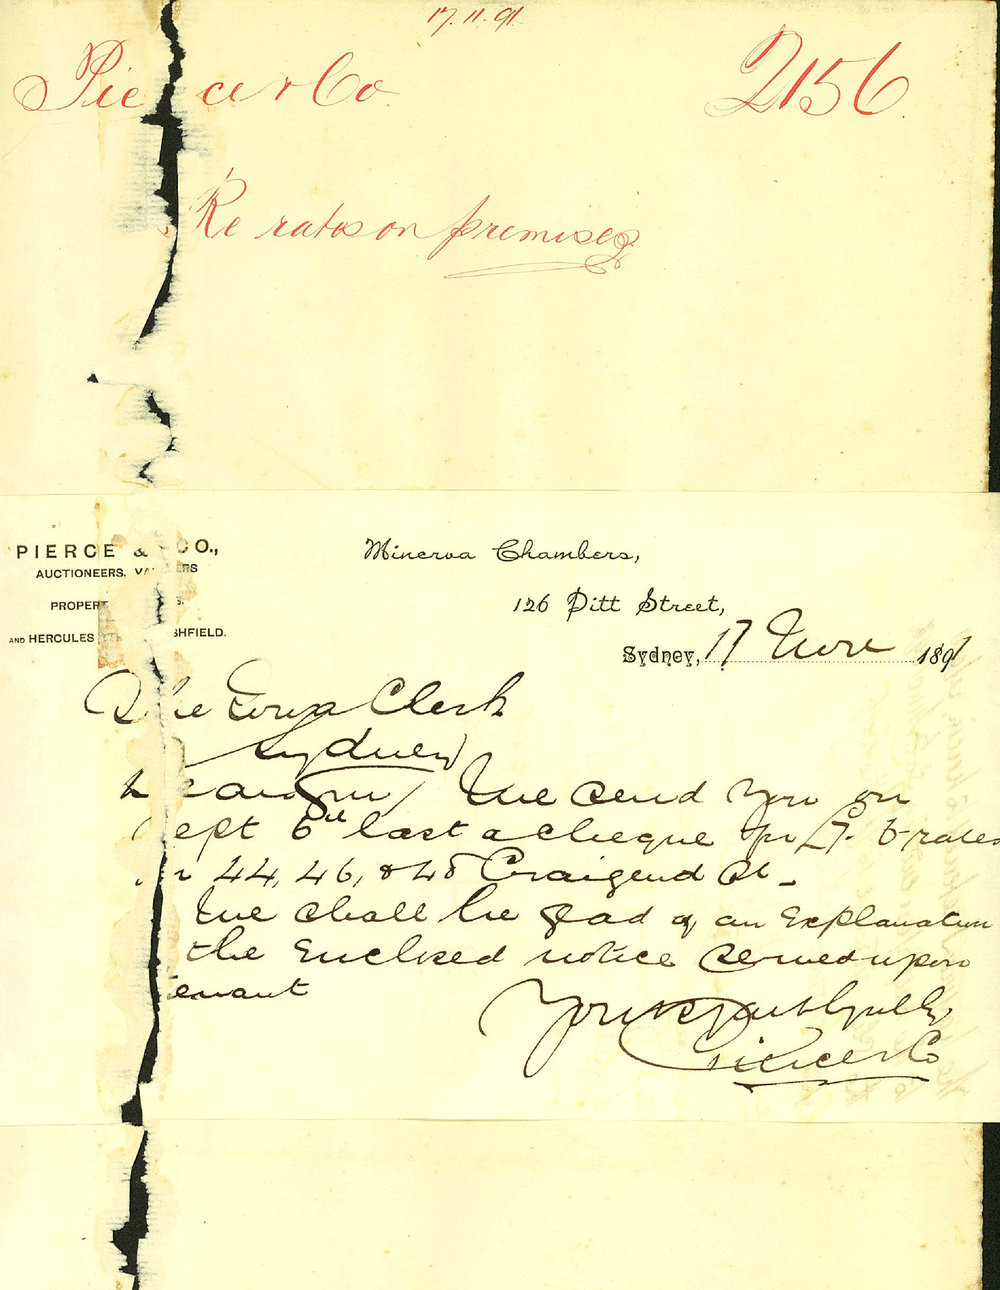 17.11.91
Pierce & Co 2156.
Re rates on premises
PIERCE & CO.,
AUCTIONEERS, VA ERS
PROPERT S.
AND HERCULES SHFIELD.
Minerva Chambers,
126 Pitt Street,
Sydney, 17 Nove 1891
The Town Clerk
Sydney
Dear Sir, We send you on
Sept 6th last a cheque for £7. 6- rates
on 44, 46, & 48 Craigend St.
We shall be glad of an Explanation
the Enclosed notice served upon
tenant
Yours faithfully
Pierce & Co